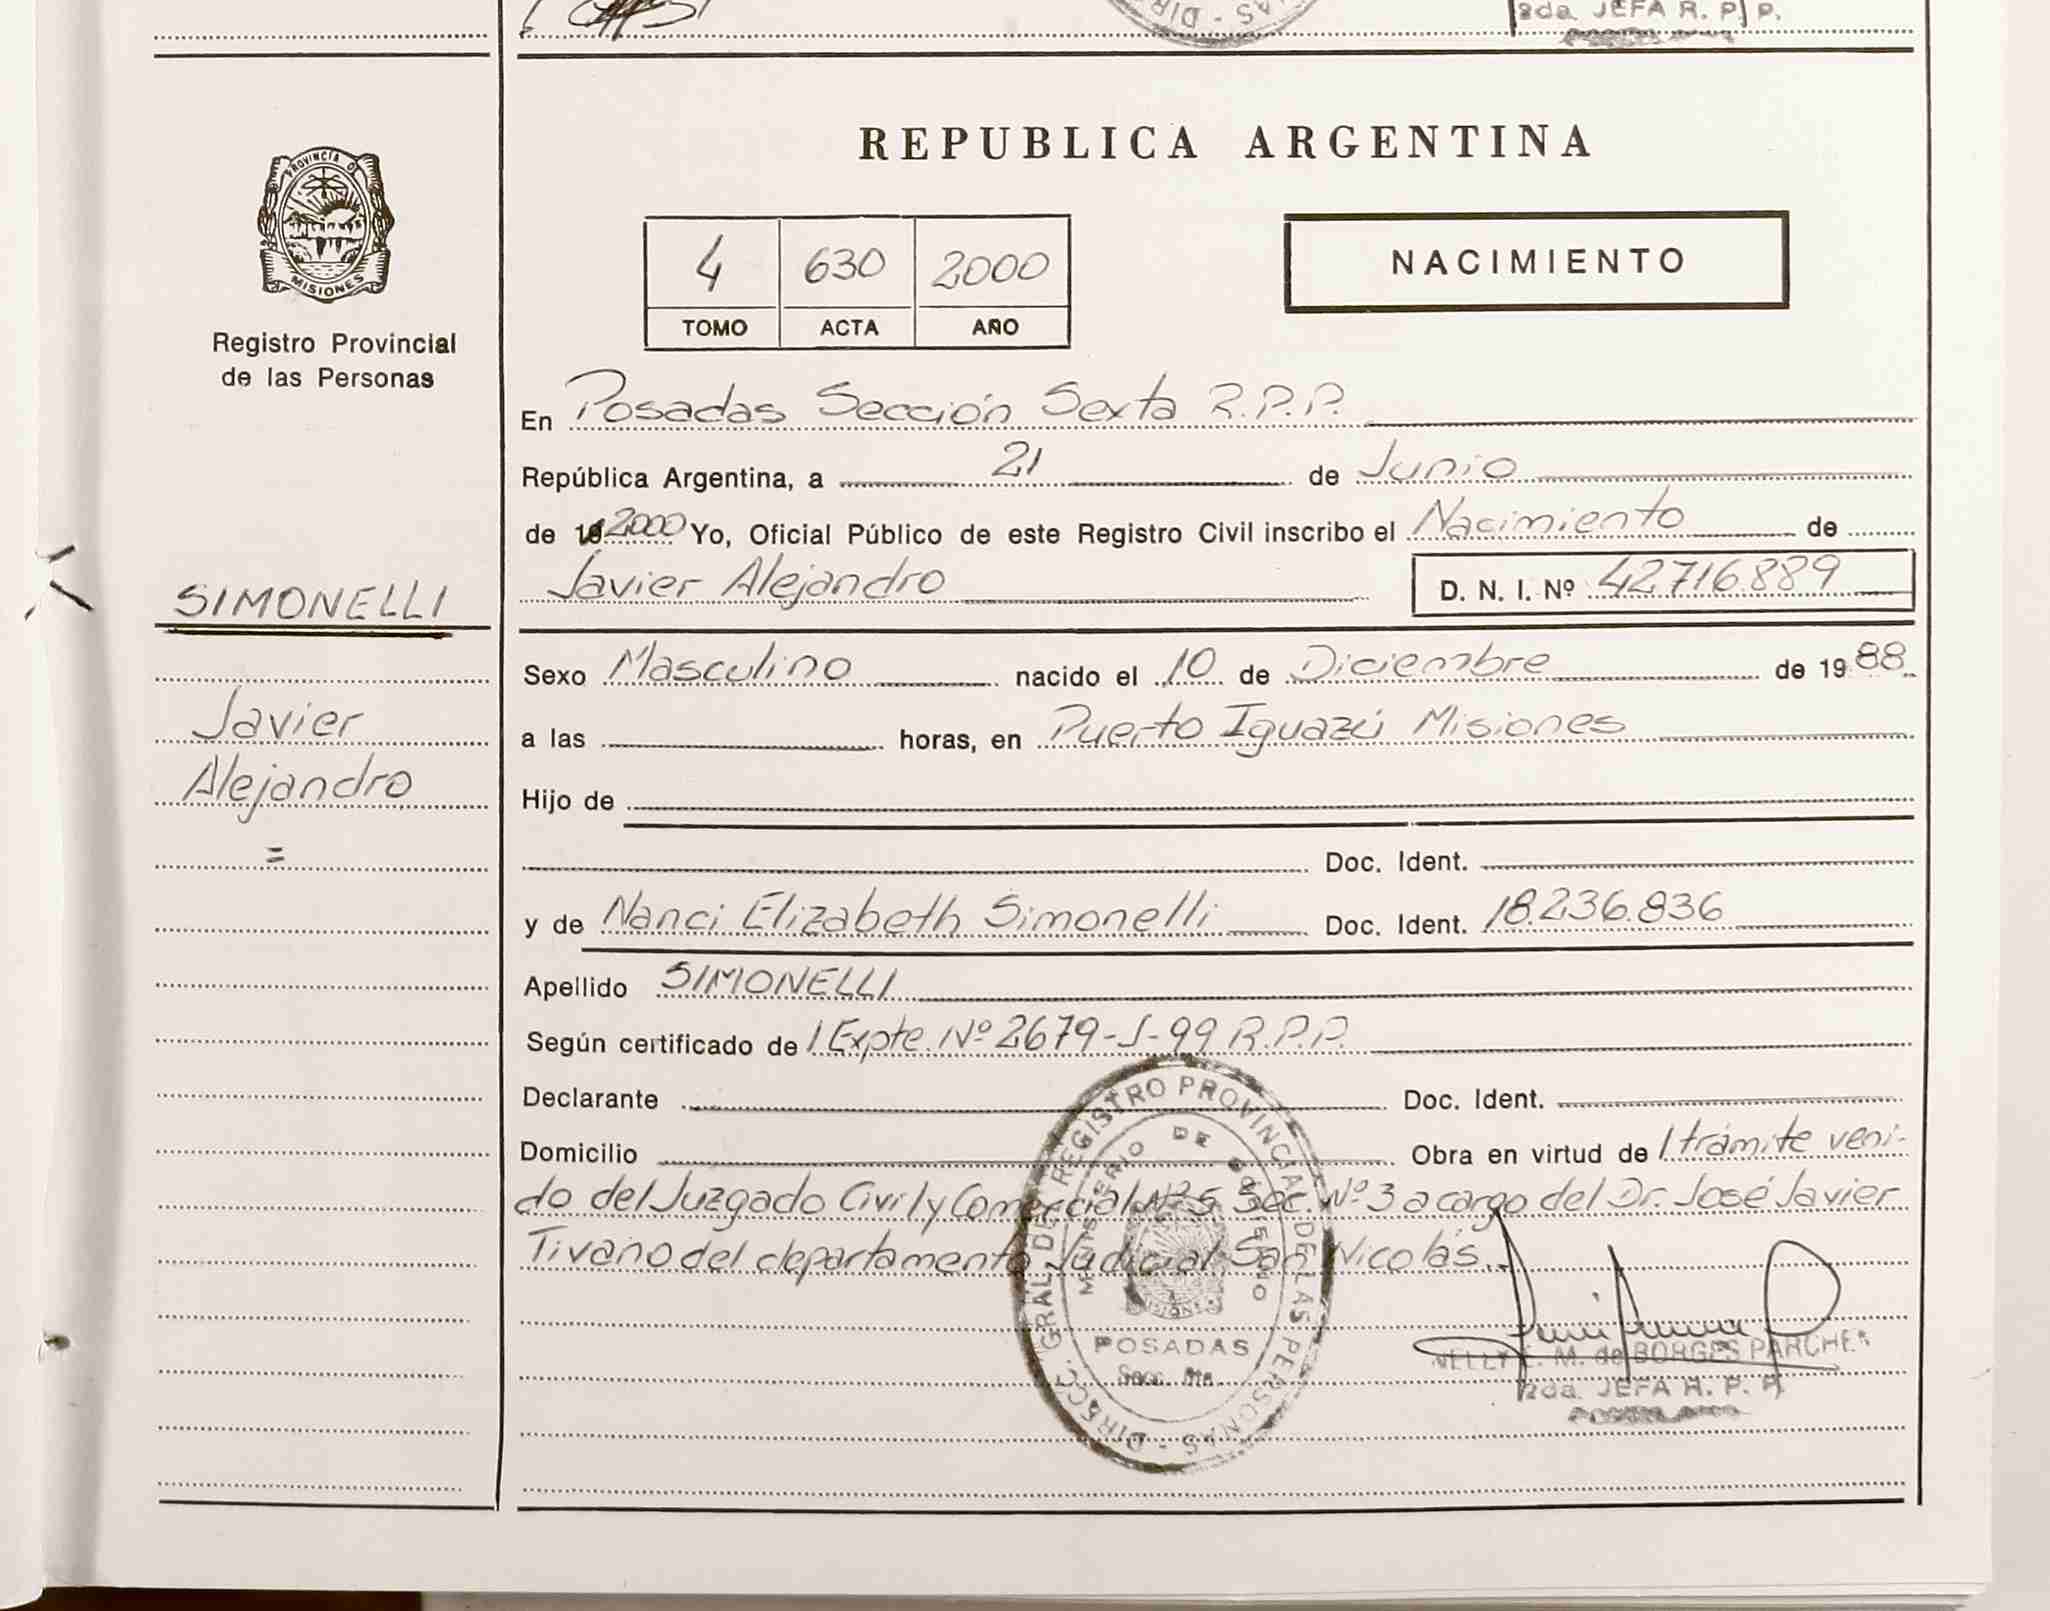 2da. JEFA R. P. P.
REPUBLICA ARGENTINA
PROVINCIA D
MISIONES
Registro Provincial
de las Personas
4 630 2000
TOMO ACTA AÑO
NACIMIENTO
En Posadas Sección Sexta R.P.P.
República Argentina, a 21 de Junio
de 19 2000 Yo, Oficial Público de este Registro Civil inscribo el Nacimiento de
Javier Alejandro D. N. I. Nº 42.716.889
SIMONELLI
Javier
Alejandro
=
Sexo Masculino nacido el 10 de Diciembre de 1988
a las horas, en Puerto Iguazú Misiones
Hijo de
Doc. Ident.
y de Nanci Elizabeth Simonelli Doc. Ident. 18.236.836
Apellido SIMONELLI
Según certificado de 1 Expte. Nº 2679-S-99 R.P.P.
Declarante Doc. Ident.
Domicilio Obra en virtud de 1 trámite veni-
do del Juzgado Civil y Comercial Nº 5 Sec. Nº 3 a cargo del Dr. José Javier
Tivano del departamento Judicial San Nicolás.
DIRECC. GRAL. DEL REGISTRO PROVINCIAL DE LAS PERSONAS
MINISTERIO DE GOBIERNO
MISIONES
POSADAS
NELLY E. M. de BORGES PARCHEN
2da. JEFA R. P. P.